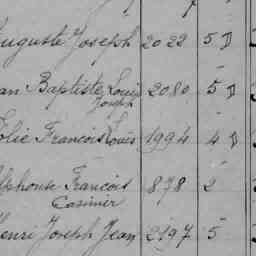 Auguste Joseph 2022 5 D
an Baptiste Louis 2080 5 D
Joseph
Elie François Louis 1994 4 D
Alphonse François 878 2
Casimir
Henri Joseph Jean 2197 5